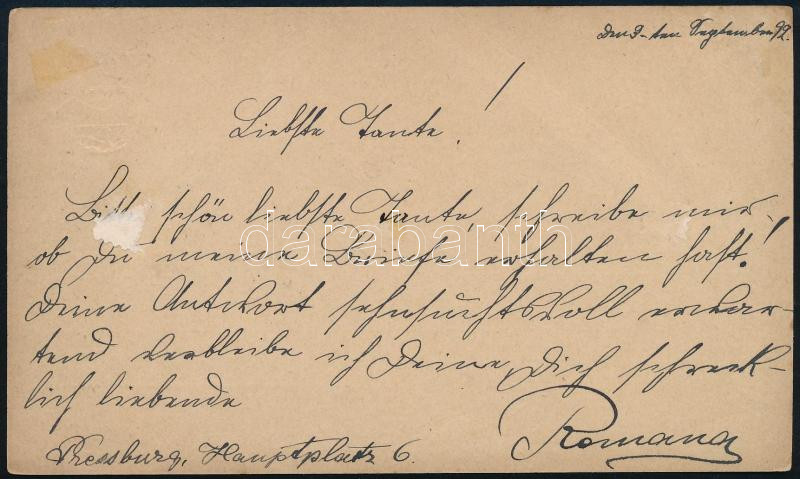 Den 9-ten September 92.
Liebste Tante!
Bitt schön liebste Tante, schreibe mir,
ob Du meine Briefe erhalten hast!
Deine Antwort sehnsuchtsvoll erwar-
tend verbleibe ich Deine, Dich schreck-
lich liebende
Romana
Pressburg, Hauptplatz 6.
darabanth